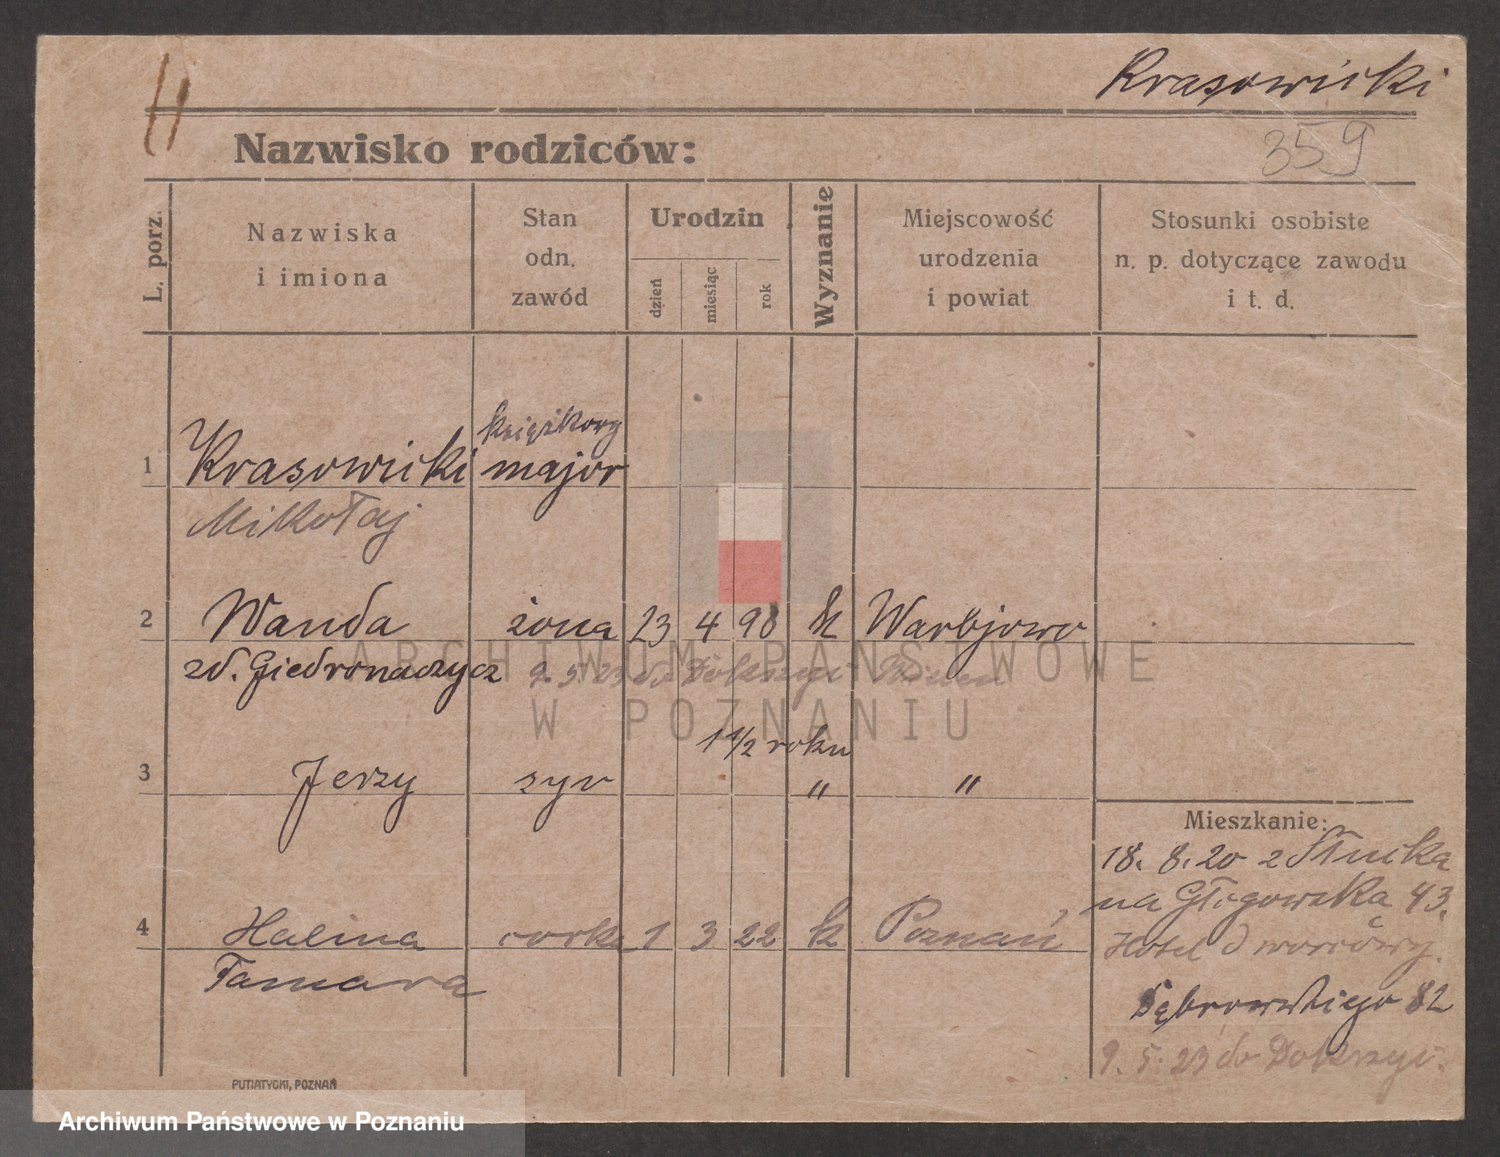 Krasowicki
359
Nazwisko rodziców:
L. porz.
Nazwiska
i imiona
Stan
odn.
zawód
Urodzin
dzień
miesiąc
rok
Wyznanie
Miejscowość
urodzenia
i powiat
Stosunki osobiste
n. p. dotyczące zawodu
i t. d.
1 Krasowicki major
Mikołaj
2 Wanda żona 23 4 98 k
zd.
9. 5. 23 do Dokszyc
1 1/2 roku
3 Jerzy syn " "
Mieszkanie:
18. 8. 20 z Słucka
na Głogowska 43.
4 Halina córka 1 3 22 k Poznań
Hotel Dworcowy.
Tamara
Dąbrowskiego 82
9. 5. 23 do Dokszyc.
PUTIATYCKI, POZNAŃ
ARCHIWUM PAŃSTWOWE
W POZNANIU
Archiwum Państwowe w Poznaniu